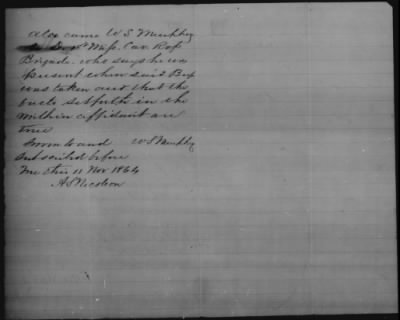 Also came W S Murphy
Co D. 1st Miss. Cav. Ross
Brigade. who says he was
present when said Beef
was taken and that the
facts setforth in the
within affidavit are
true
Sworn to and W S Murphy
subscribed before
me this 11 Nov 1864
A S Nicolson